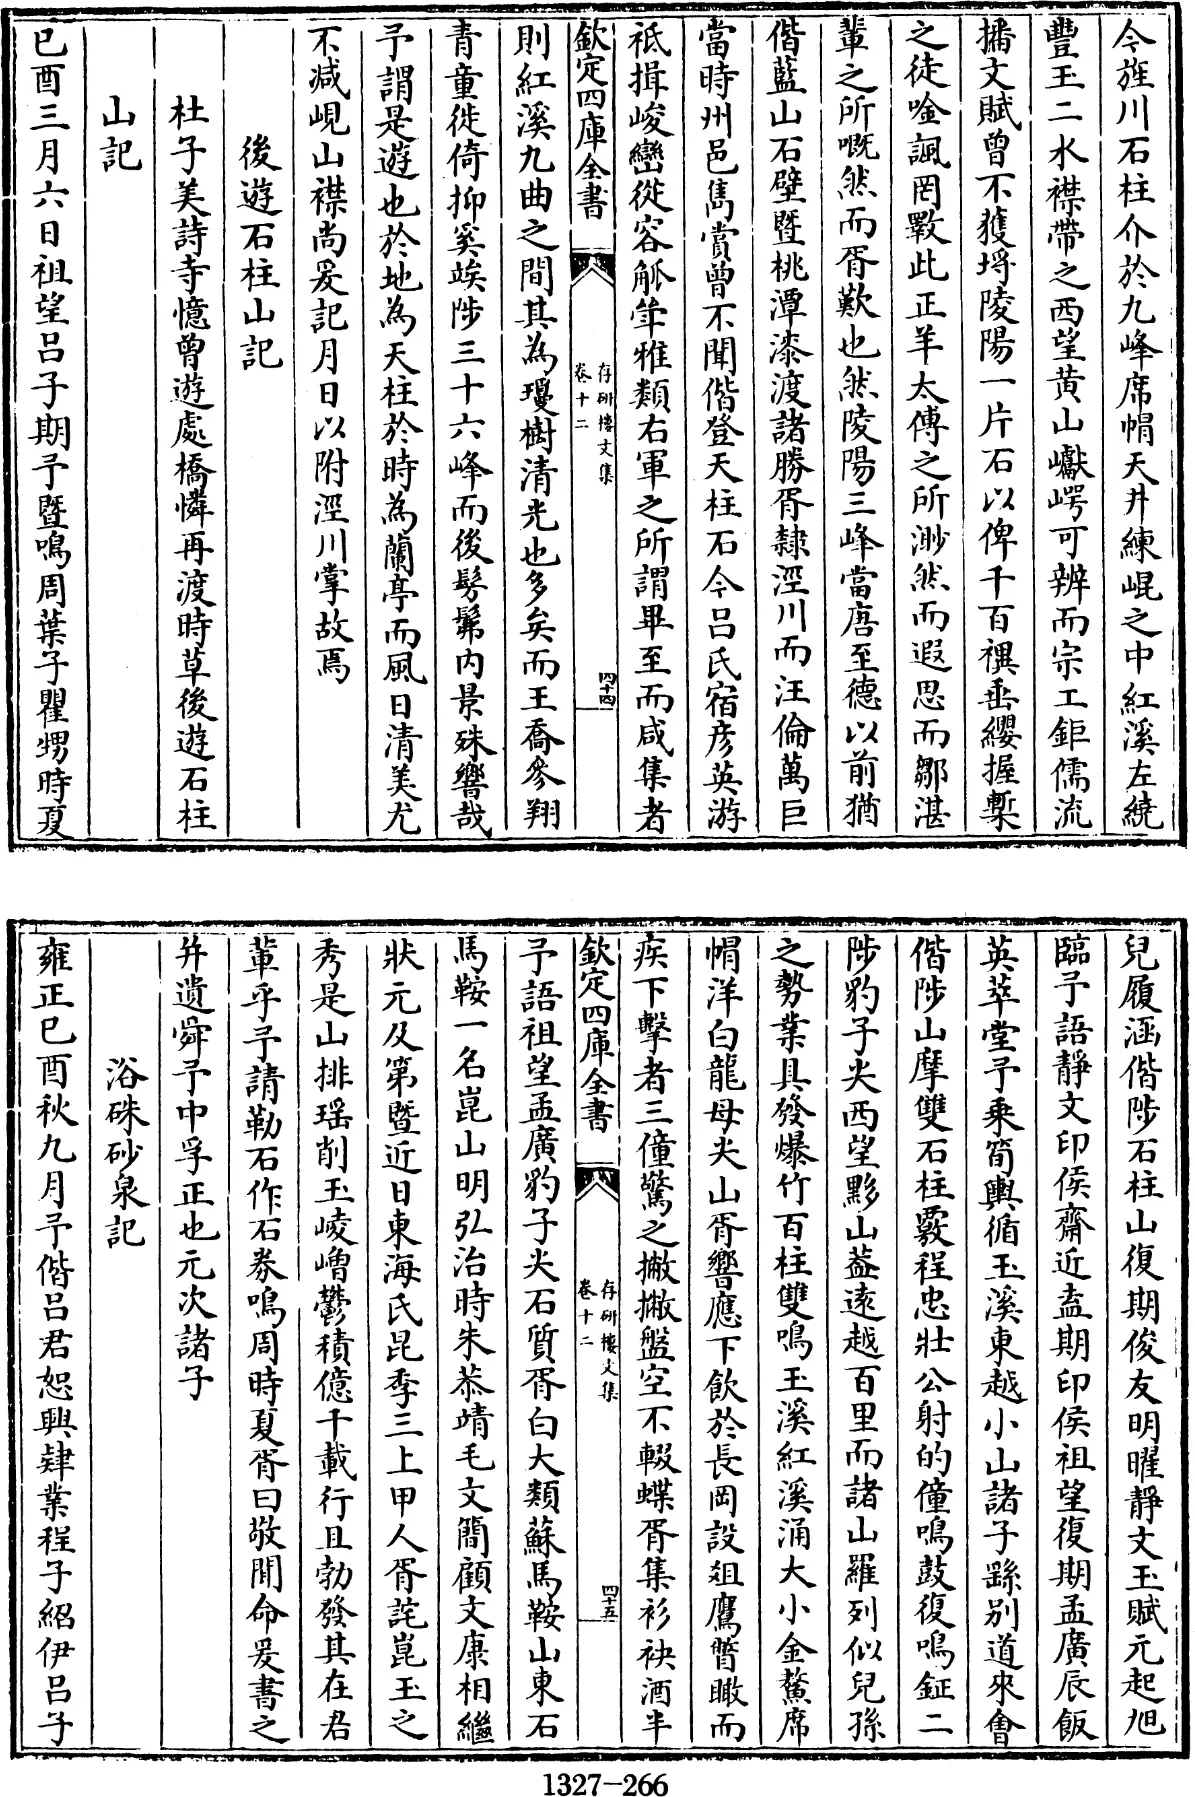 今旌川石柱介於九峰席帽天井練崐之中紅溪左繞
豐玉二水襟帶之西望黄山巘崿可辨而宗工鉅儒流
播文賦曾不獲埒陵陽一片石以俾千百禩垂纓握槧
之徒唫諷罔斁此正羊太傅之所渺然而遐思而鄒湛
輩之所嘅然而胥歎也然陵陽三峰當唐至德以前猶
偕藍山石壁暨桃潭漆渡諸勝胥隸涇川而汪倫萬巨
當時州邑雋賞曾不聞偕登天柱石今吕氏宿彦英游
祗揖峻巒從容觚筆雅類右軍之所謂畢至而咸集者
欽定四庫全書
存研樓文集
卷十二
四十四
則紅溪九曲之間其為瓊樹清光也多矣而王喬參翔
青童徙倚抑奚竢陟三十六峰而後髣髴内景殊響哉
予謂是遊也於地為天柱於時為蘭亭而風日清美尤
不减峴山襟尚爰記月日以附涇川掌故焉
後遊石柱山記
杜子美詩寺憶曾遊處橋憐再渡時草後遊石柱
山記
已酉三月六日祖望吕子期予暨鳴周葉子瞿甥時夏
兒履涵偕陟石柱山復期俊友明曜靜文玉賦元起旭
臨予語靜文印侯齋近盍期印侯祖望復期孟廣辰飯
英萃堂予乘筍輿循玉溪東越小山諸子繇别道來會
偕陟山摩雙石柱覈程忠壯公射的僮鳴鼓復鳴鉦二
陟豹子尖西望黟山葢逺越百里而諸山羅列似兒孫
之勢業具發爆竹百柱雙鳴玉溪紅溪涌大小金鰲席
帽洋白龍母尖山胥響應下飲於長岡設俎鷹瞥瞰而
疾下擊者三僮驚之撇撇盤空不輟蝶胥集衫袂酒半
欽定四庫全書
存研樓文集
卷十二
四十五
予語祖望孟廣豹子尖石質胥白大類蘇馬鞍山東石
馬鞍一名崑山明弘治時朱恭靖毛文簡顧文康相繼
狀元及第暨近日東海氏昆季三上甲人胥詫崑玉之
秀是山排瑶削玉崚嶒鬱積億千載行且勃發其在君
輩乎予請勒石作石券鳴周時夏胥曰敬聞命爰書之
并遺舜予中孚正也元次諸子
浴硃砂泉記
雍正已酉秋九月予偕吕君恕興肄業程子紹伊吕子
1327-266